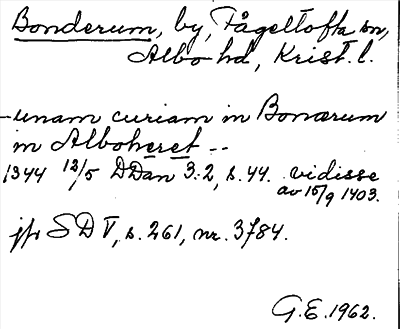 Bonderum, by, Fågeltofta sn,
Albo hd, Krist. l.
-unam curiam in Bonærum
in Alboheret --
1344 12/5 DDan 3:2, s. 44. vidisse
av 15/9 1403.
jfr SD V, s. 261, nr. 3784.
G.E. 1962.